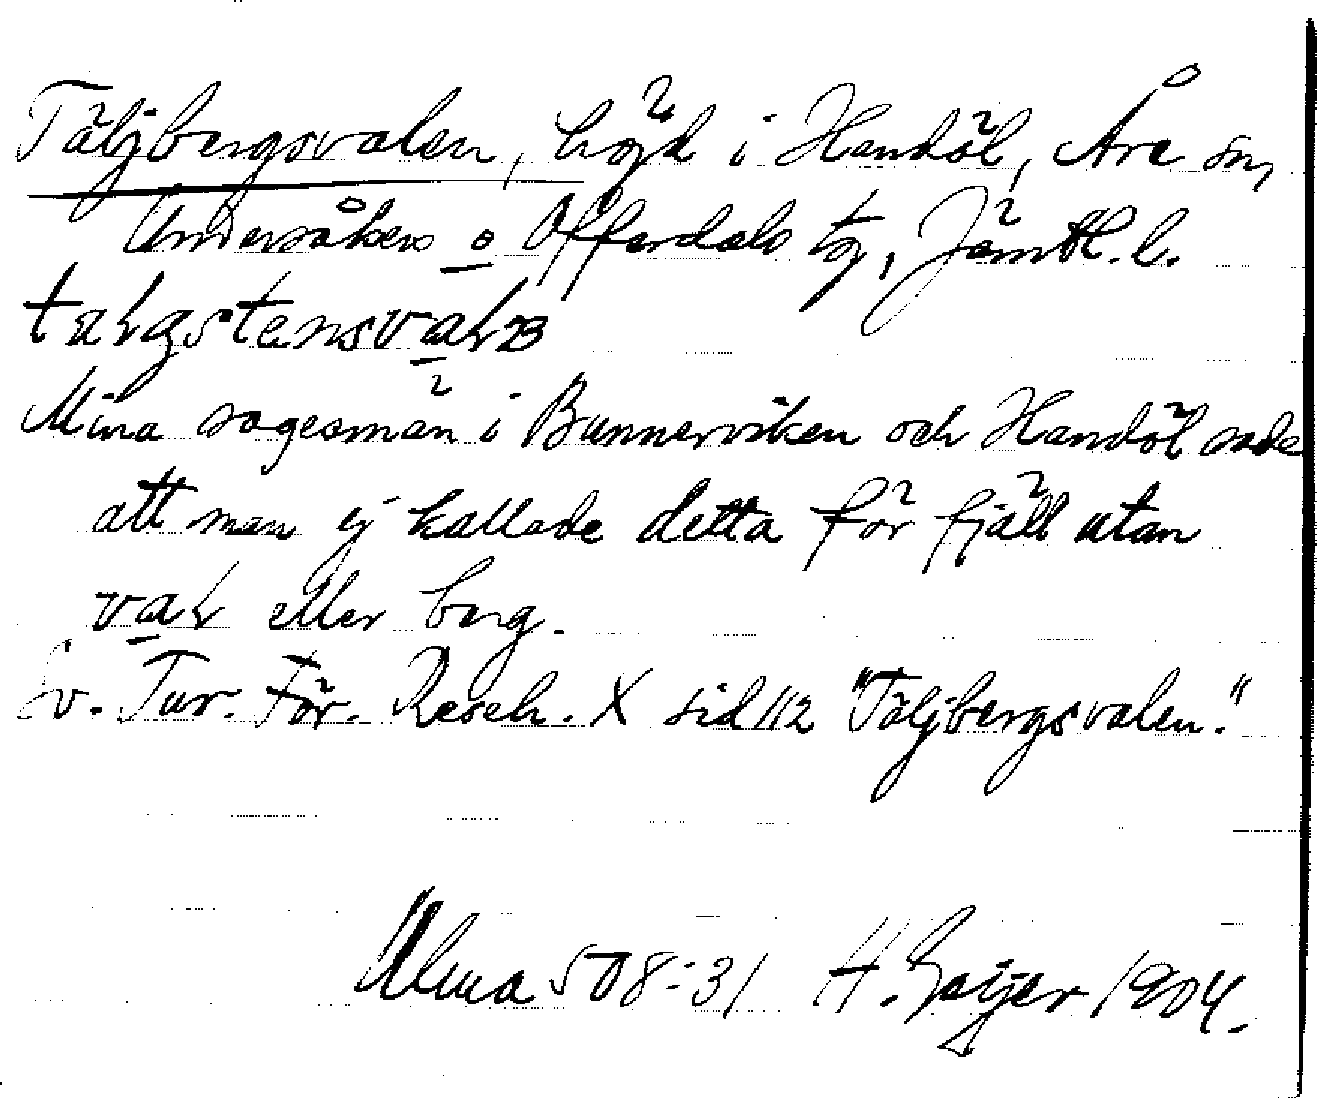 Täljbergsvalen, höjd i Handöl, Åre sn,
Undersåkers o Offerdals tg, Jämtl. l.
Mina sagesmän i Bunnerviken och Handöl sade
att man ej kallade detta för fjäll utan
val eller berg.
Sv. Tur. För. Reseh. X sid 112 "Täljbergsvalen."
Ulma 508:31 H. Geijer 1904.